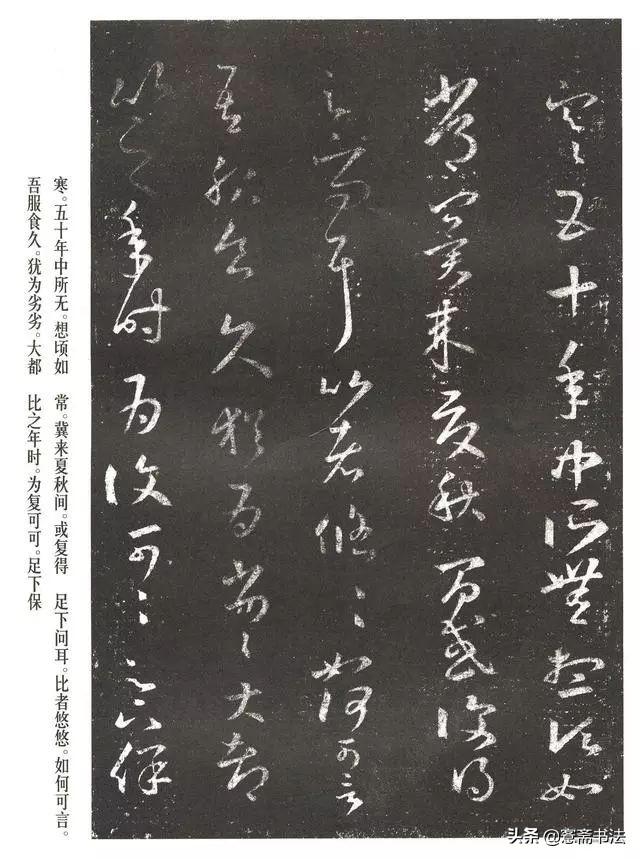 寒五十年中所無想頃如
常冀來夏秋間或復得
足下問耳比者悠〻如何可言
吾服食久猶為劣〻大都
比之年時為復可〻足下保
寒。五十年中所无。想顷如　常。冀来夏秋间。或复得　足下问耳。比者悠悠。如何可言。
吾服食久。犹为劣劣。大都　比之年时。为复可可。足下保
头条 @斋书法